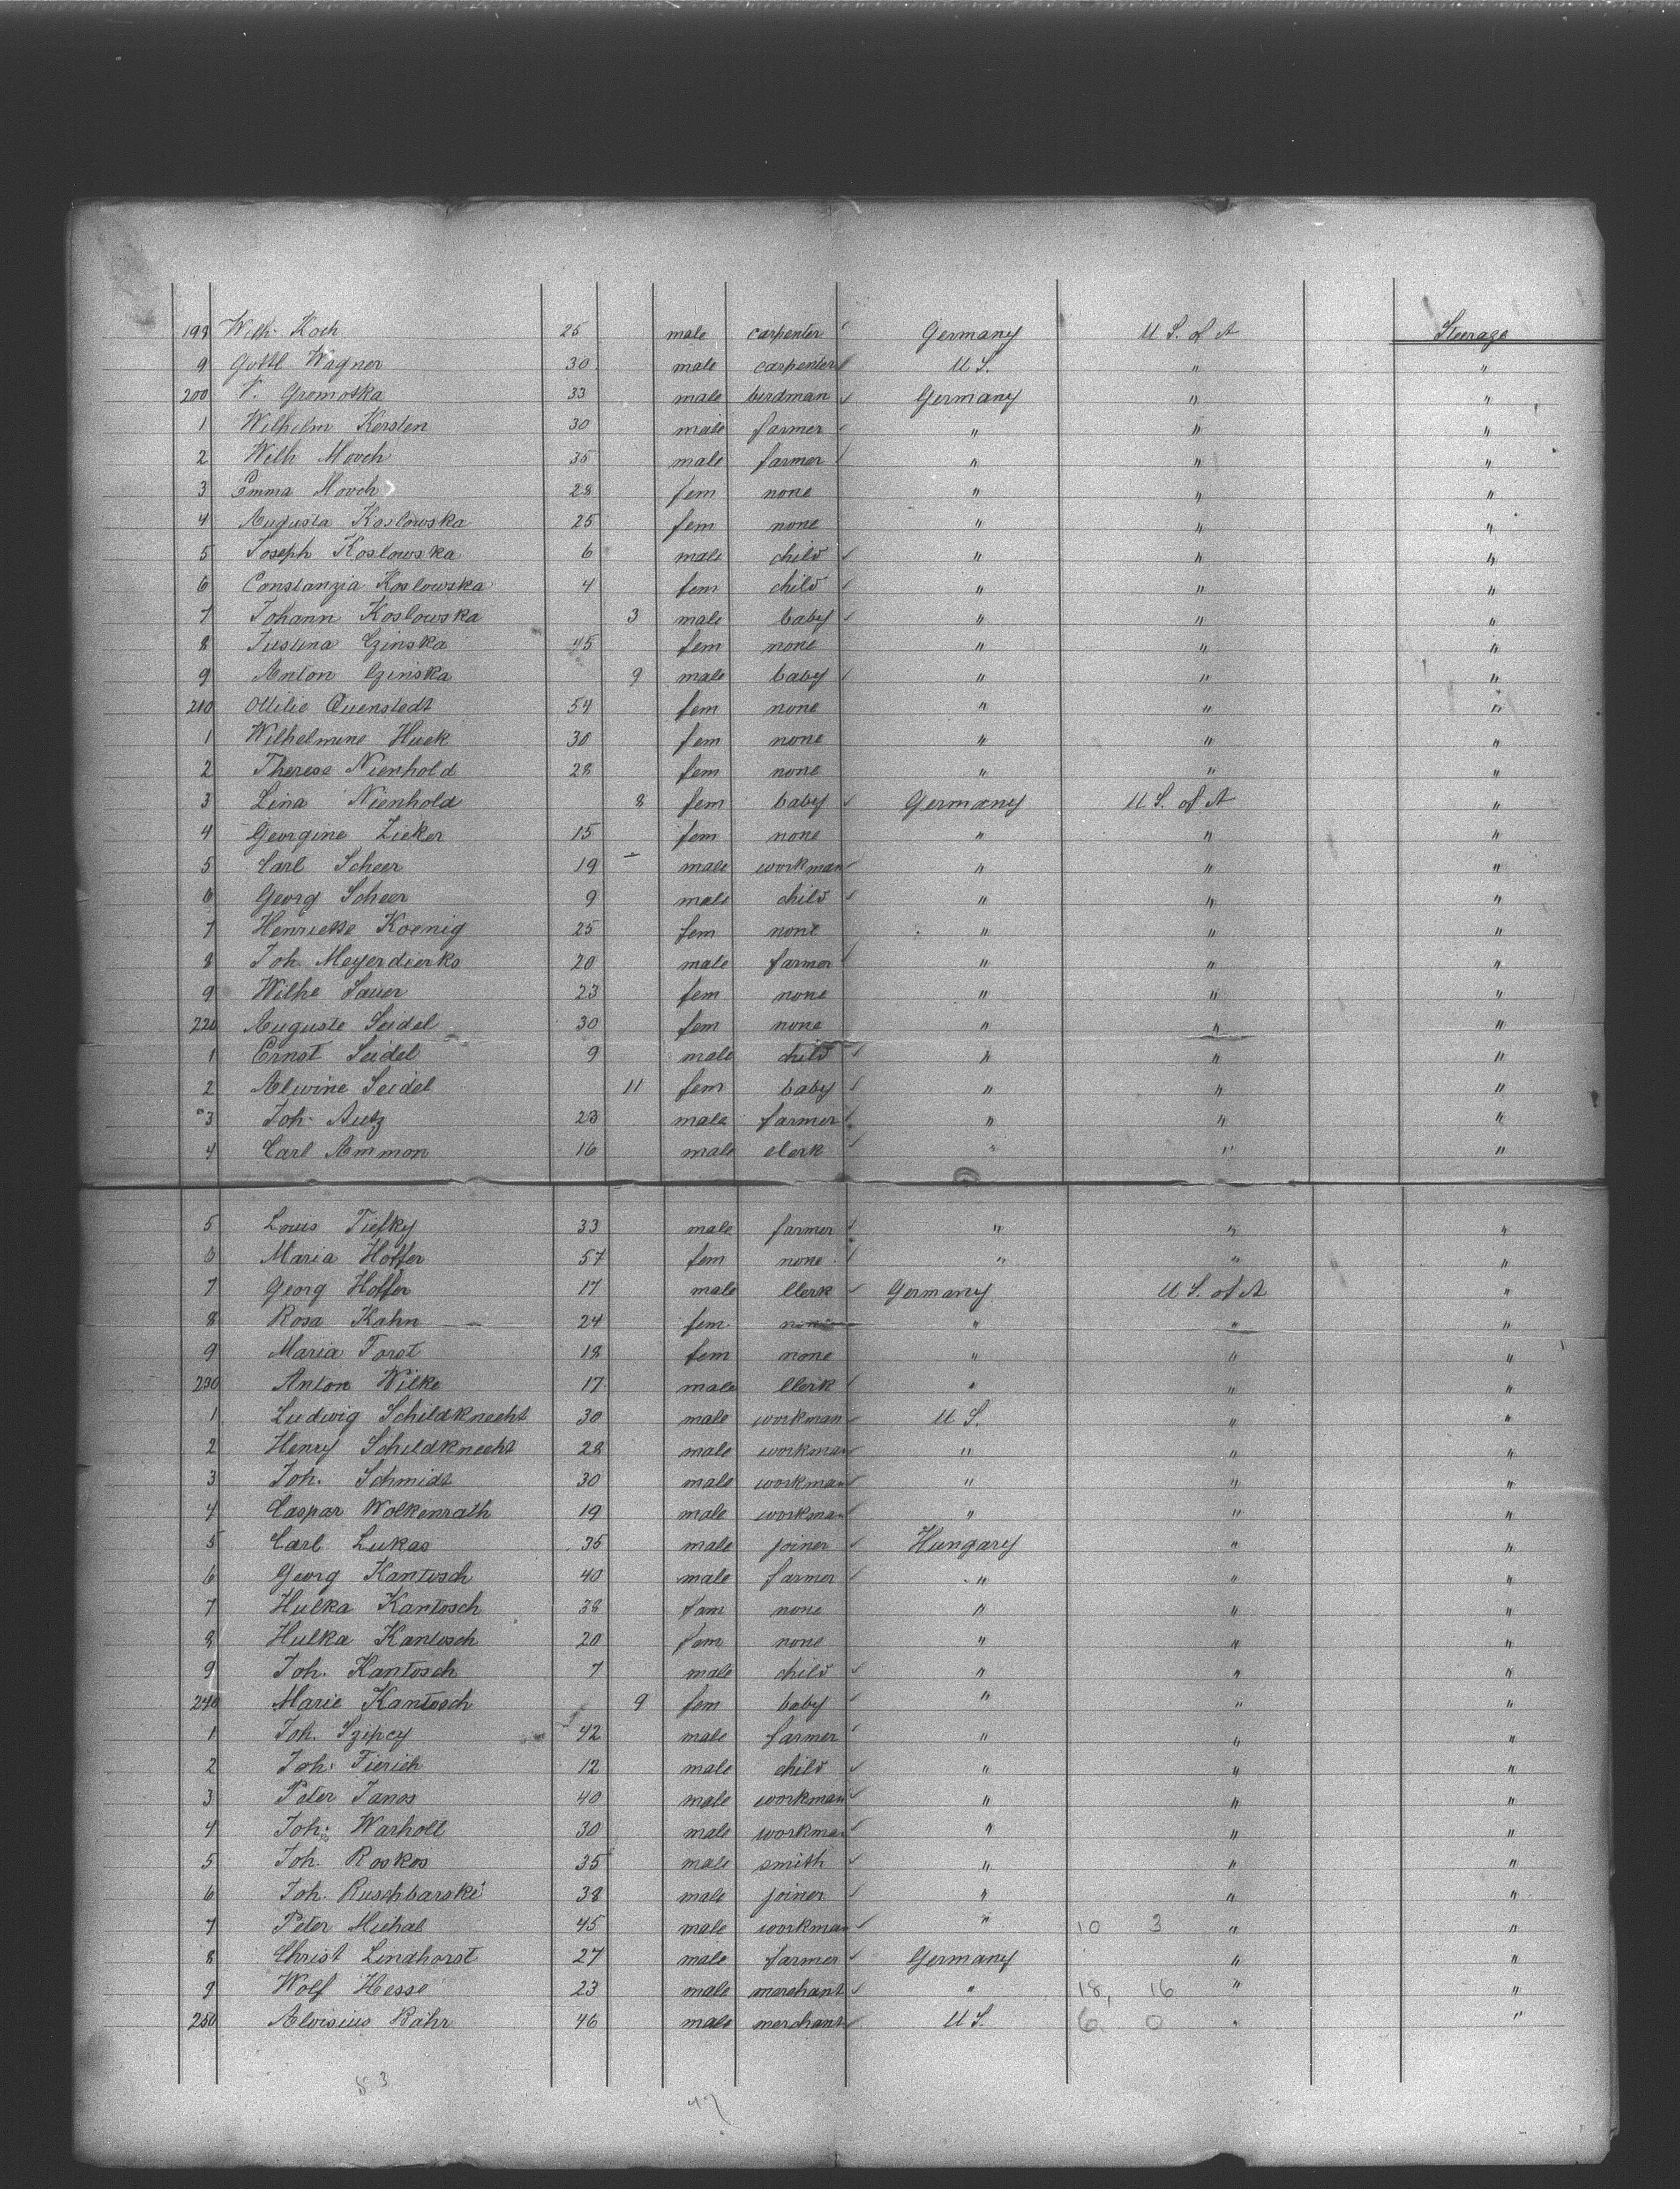 198 Wilh. Koch 25 male carpenter Germany U.S. of A Steerage
9 Gottl Wagner 30 male carpenter U.S. " "
200 V. Gromotka 33 male birdman Germany " "
1 Wilhelm Kersten 30 male farmer " " "
2 Wilh Movch 35 male farmer " " "
3 Emma Movch 28 fem none " " "
4 Augusta Koslowska 25 fem none " " "
5 Joseph Koslowska 6 male child " " "
6 Constanzia Koslowska 4 fem child " " "
7 Johann Koslowska 3 male baby " " "
8 Justina Czinska 45 fem none " " "
9 Anton Czinska 9 male baby " " "
210 Ottilie Quenstedt 54 fem none " " "
1 Wilhelmine Huek 30 fem none " " "
2 Therese Nienhold 28 fem none " " "
3 Lina Nienhold 8 fem baby Germany U.S. of A "
4 Georgine Zieker 15 fem none " " "
5 Carl Scheer 19 male workman " " "
6 Georg Scheer 9 male child " " "
7 Henrieke Koenig 25 fem none " " "
8 Joh. Meyerdierks 20 male farmer " " "
9 Wilhe Sauer 23 fem none " " "
220 Auguste Seidel 30 fem none " " "
1 Ernst Seidel 9 male child " " "
2 Alwine Seidel 11 fem baby " " "
3 Joh. Autz 23 male farmer " " "
4 Carl Ammon 16 male clerk " " "
5 Louis Tiefky 33 male farmer " " "
6 Maria Hoffer 57 fem none " " "
7 Georg Hoffer 17 male Clerk Germany U.S. of A "
8 Rosa Kahn 24 fem. none " " "
9 Maria Forst 18 fem none " " "
230 Anton Wilke 17 male Clerk " " "
1 Ludwig Schildknecht 30 male workman U.S. " "
2 Henry Schildknecht 28 male workman " " "
3 Joh. Schmidt 30 male workman " " "
4 Caspar Wolkenrath 19 male workman " " "
5 Carl Lukas 35 male joiner Hungary " "
6 Georg Kantosch 40 male farmer " " "
7 Hulka Kantosch 38 fam none " " "
8 Hulka Kantosch 20 fem none " " "
9 Joh. Kantosch 7 male child " " "
240 Marie Kantosch 9 fem baby " " "
1 Joh. Szepcy 42 male farmer " " "
2 Joh. Fierich 12 male child " " "
3 Peter Janos 40 male workman " " "
4 Joh. Warholl 30 male workman " " "
5 Joh. Roskos 35 male smith " " "
6 Joh. Ruschbarski 38 male joiner " " "
7 Peter Michal 45 male workman " 10 3 " "
8 Christ Lindhorst 27 male farmer Germany " "
9 Wolf Hesse 23 male merchant " 18, 16 " "
250 Aloisius Bähr 46 male merchant U.S. 6 0 " "
83
47